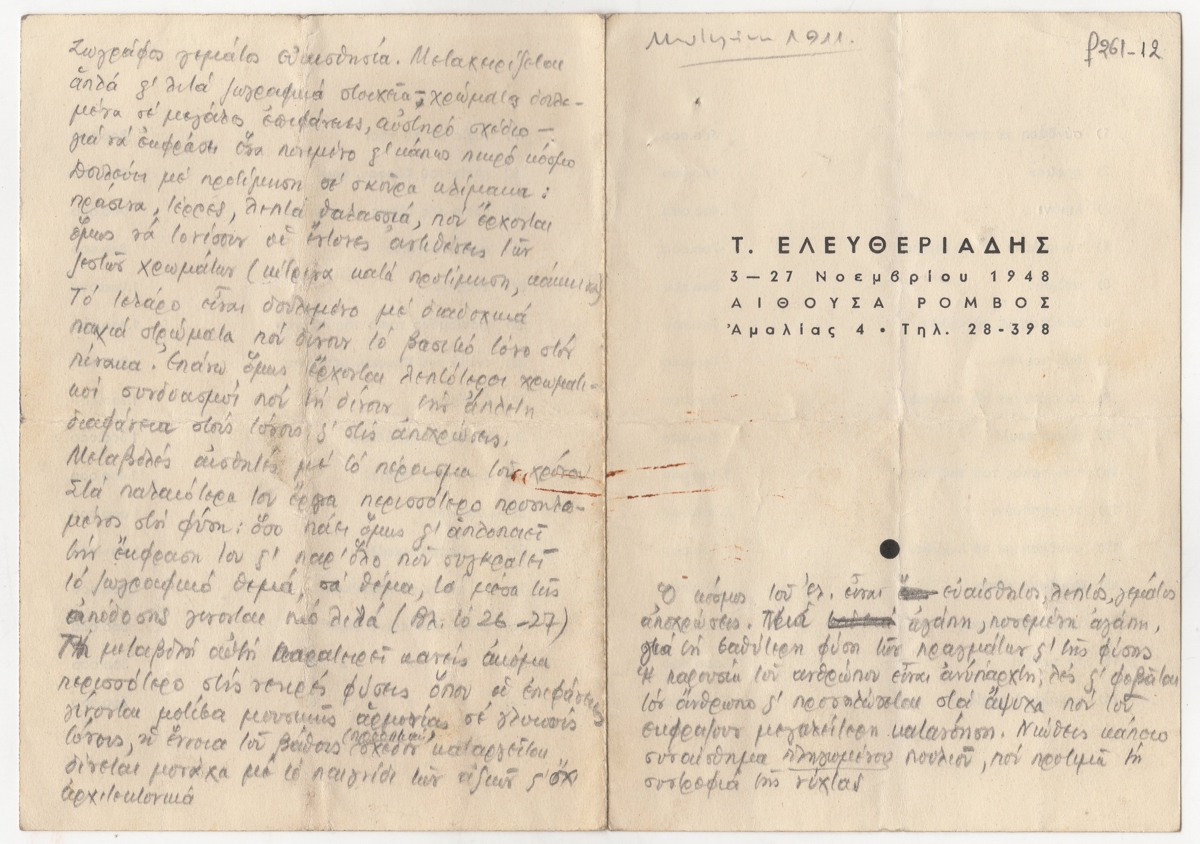 Ζωγράφος γεμάτος εὐαισθησία. Μεταχειρίζεται
ἁπλά ϗ' λιτά ζωγραφικά στοιχεῖα, χρώματα δουλε-
μένα σέ μεγάλες ἐπιφάνειες, αὐστηρό σχέδιο –
γιά νά ἐκφράσει ἕνα πονεμένο ϗ' κάπως πικρό κόσμο
Δουλεύει μέ προτίμηση σέ σκοῦρα κλίμακα:
πράσινα, τέρρες, λεπτά θαλασσιά, πού ἔρχονται
ὅμως νά τονίσουν οἱ ἔντονες ἀντιθέσεις τῶν
ζεστῶν χρωμάτων (κίτρινα κατά προτίμηση, κόκκινα)
Τό τελάρο εἶναι δουλεμένο μέ διαδοχικά
παχιά στρώματα πού δίνουν τό βασικό τόνο στόν
πίνακα. Ἐπάνω ὅμως ἔρχονται λεπτότεροι χρωματι-
κοί συνδυασμοί πού τή δίνουν τήν
διαφάνεια στούς τόνους ϗ' στίς ἀποχρώσεις.
Μεταβολές αἰσθητές μέ τό πέρασμα τοῦ χρόνου
Στά παλαιότερα του ἔργα περισσότερο προσηλω-
μένος στή φύση: ὅσο πάει ὅμως ϗ' ἁπλοποιεῖ
τήν ἔκφραση του ϗ' παρ' ὅλο πού συγκρατεῖ
τό ζωγραφικό θέμα, τά μέσα τῆς
ἀπόδοσης γίνονται πιό λιτά (βλ. τό 26-27)
Τή μεταβολή αὐτή παρατηρεῖ κανείς ἀκόμα
περισσότερο στίς νεκρές φύσεις ὅπου οἱ ἐπιφάνειες
γίνονται μοτίβα μουσικῆς ἁρμονίας σέ γλυκούς
τόνους, ἡ ἔννοια τοῦ βάθους σχεδόν καταργεῖται
δίνεται μονάχα μέ τό παιγνίδι τῶν ἀξιῶν ϗ' ὄχι
ἀρχιτεκτονικά
1911.
φ261-12
Τ. ΕΛΕΥΘΕΡΙΑΔΗΣ
3 – 27 Νοεμβρίου 1948
ΑΙΘΟΥΣΑ ΡΟΜΒΟΣ
Ἀμαλίας 4 • Τηλ. 28-398
Ὁ κόσμος τοῦ Ἐλ. εἶναι εὐαίσθητος, λεπτός, γεμάτος
ἀποχρώσεις. Μιά ἀγάπη, πονεμένη ἀγάπη,
γιά τή βαθύτερη φύση τῶν πραγμάτων ϗ' τῆς φύσης
Ἡ παρουσία τοῦ ἀνθρώπου εἶναι ἀνύπαρχτη, λές ϗ' φοβᾶται
τόν ἄνθρωπο ϗ' προσηλώνεται στά ἄψυχα πού τοῦ
ἐκφράζουν μεγαλείτερη κατανόηση. Νιώθεις κάποιο
συναίσθημα πληγωμένου πουλιοῦ, πού προτιμᾶ τή
συντροφιά τῆς νύχτας